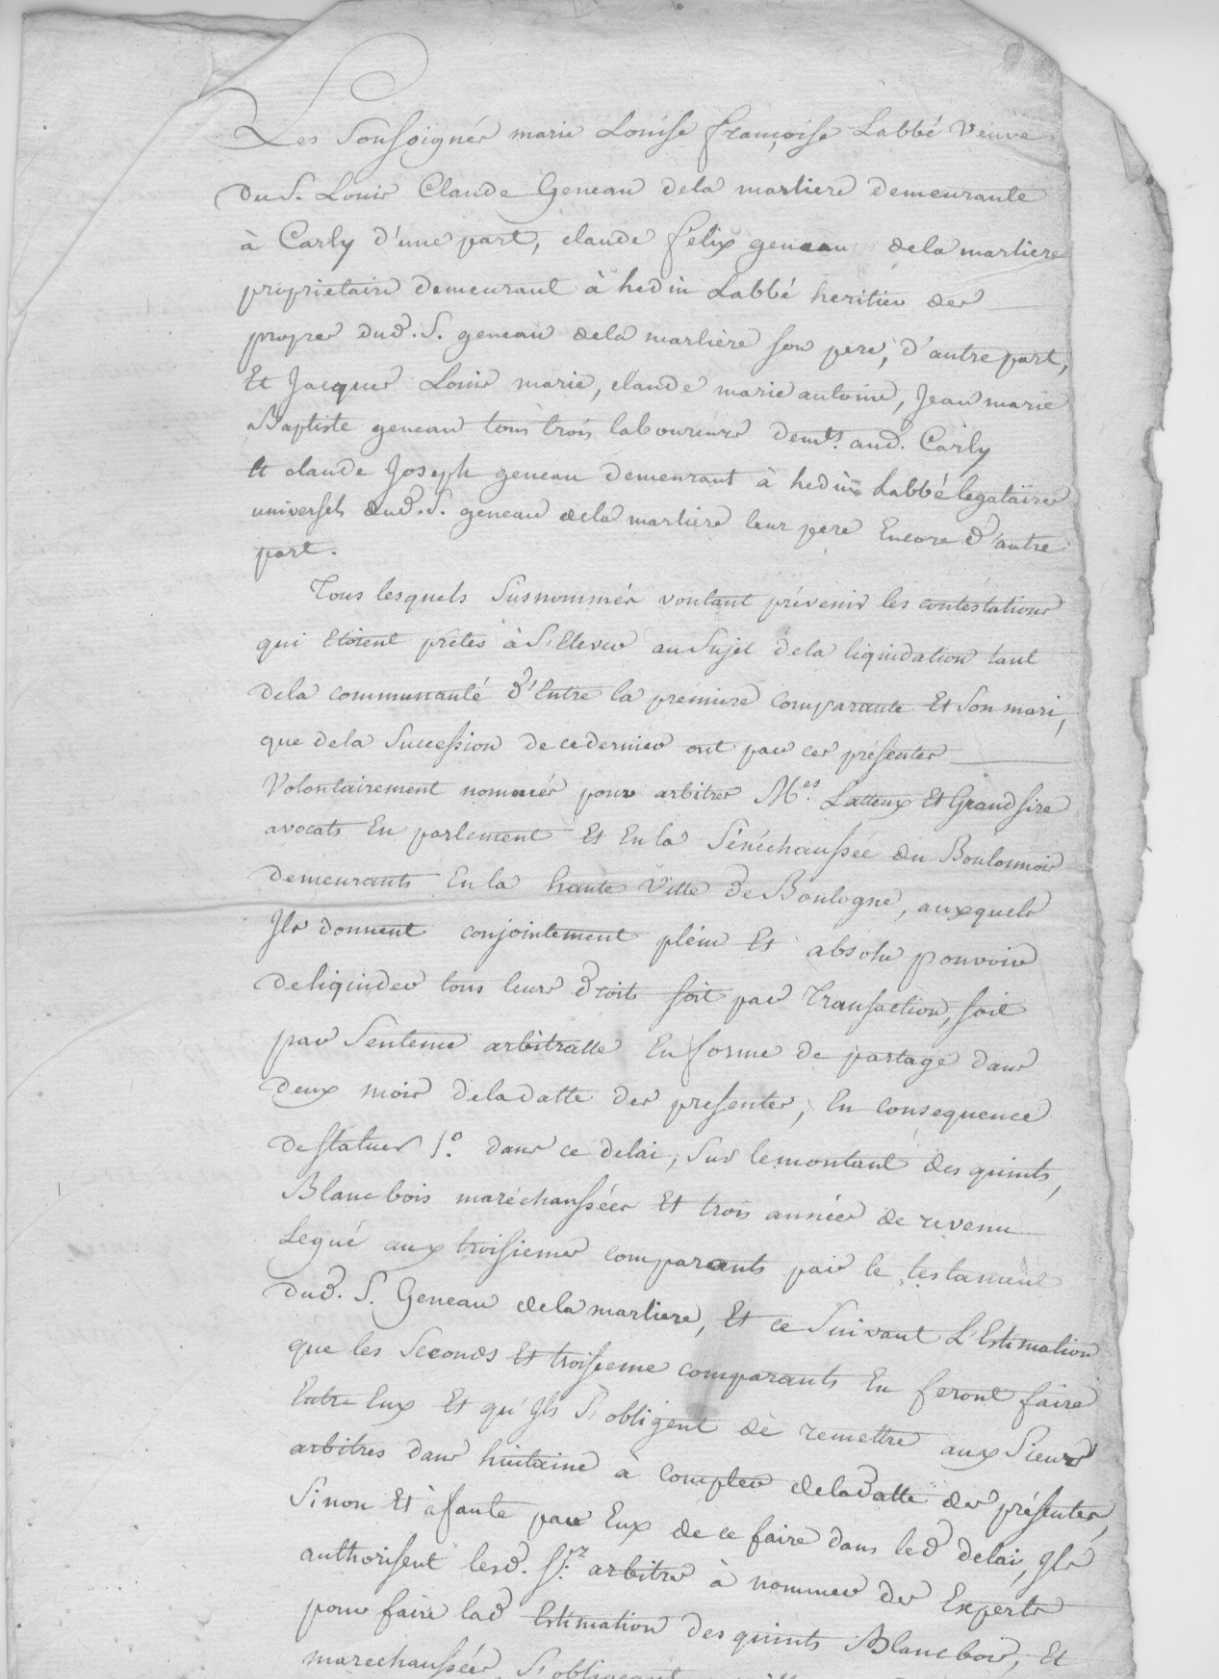 Les Soussignés marie Louise françoise Labbé Veuve
du S. Louis Claude Geneau dela marliere demeurante
à Carly d'une part, claude felix geneau dela marliere
proprietaire demeurant à hedin Labbé heritier des
propres dud. S. geneau dela marliere son pere, d'autre part,
Et Jacques Louis marie, claude marie antoine, Jean marie
Baptiste geneau tous trois laboureurs demts. aud. Carly
et claude Joseph geneau demeurant à hedin Labbé legataires
universels dud. S. geneau dela marliere leur pere Encore d'autre
part.
Tous lesquels Susnommés voulant prévenir les contestations
qui étoient prêtes à S'élever au Sujet dela liquidation tant
dela communauté d'Entre la premiere comparante Et Son mari,
que dela Succession de cedernier ont par ces présentes
Volontairement nommés pour arbitres Mes. Latteux Et Grandsire
avocats En parlement Et En la Sénéchaussée du Boulonnois
demeurants En la haute Ville de Boulogne, auxquels
Ils donnent conjointement plein Et absolu pouvoir
deliquider tous leurs droits soit par Transaction, soit
par Sentence arbitralle En forme de partage dans
deux mois deladatte des presentes, En consequence
destatuer 1º. dans ce delai, Sur lemontant des quints,
Blanc bois maréchaussées Et trois années de revenu
Legué aux troisiemes comparants par le testament
dud. S. Geneau dela marliere, Et ce Suivant L'Estimation
que les Seconds Et troisieme comparants En feront faire
Entre Eux Et qu'Ils S'obligent de remettre aux Sieurs
arbitres dans huitaine à compter deladatte des présentes,
Sinon Et àfaute par Eux de ce faire dans led delai, Ils
authorisent lesd. Srz. arbitres à nommer des Experts
pour faire lad Estimation des quints Blancbois, Et
marechaussées, S'obligeant